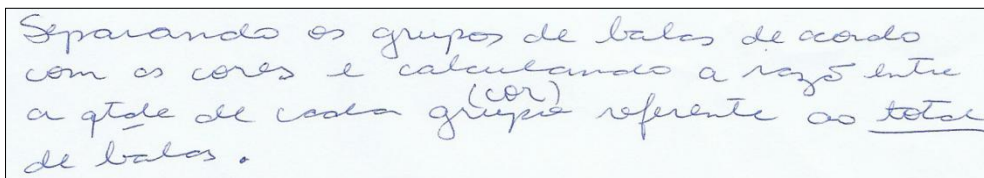 Separando os grupos de balas de acordo
com as cores e calculando a razão entre
a qtde de cada grupo (cor) referente ao total
de balas.